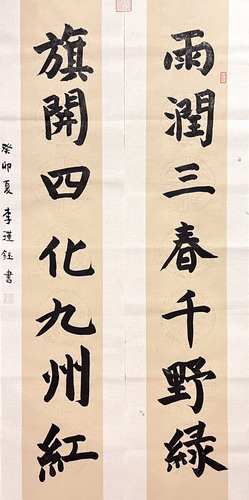 雨潤三春千野緑
旗開四化九州紅
癸卯夏李瑾鈺書